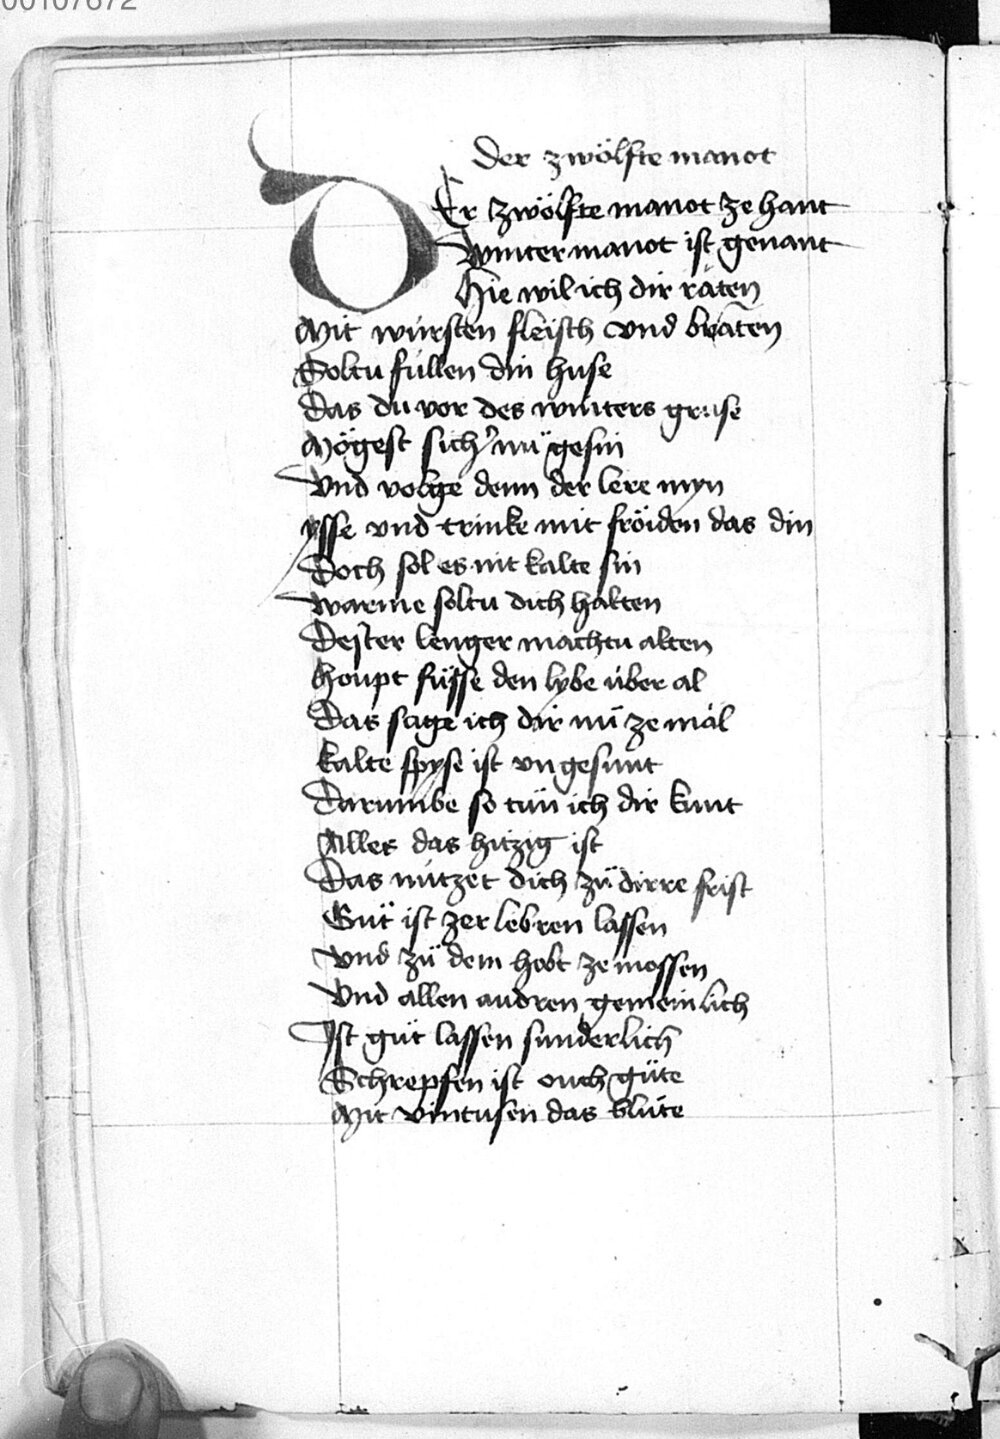 00107672
Der zwölfte manot
Er zwölfte manot ze hant
Wintermanot ist genant
Hie wil ich dir räten
Mit würsten fleisch vnd bräten
Soltu füllen din huse
Das du vor des winters gruse
Mögest sich' nü gesin
Vnd volge denn der lere myn
ysse vnd trinke mit fröiden das din
Doch sol es nit kalte sin
Warme soltu dich halten
Dester lenger machtu alten
Houpt füsse den lybe über al
Das sage ich dir nü ze mäl
Kalte spyse ist vngesunt
Darumbe so tün ich dir kunt
Alles das hitzig ist
Das nützet dich zü dirre frist
Güt ist zer lebren lassen
Vnd zü dem hobt ze mossen
Vnd allen andren gemeinlich
Ist güt lassen sunderlich
Schrepfen ist ouch güte
Mit vintusen das blüte